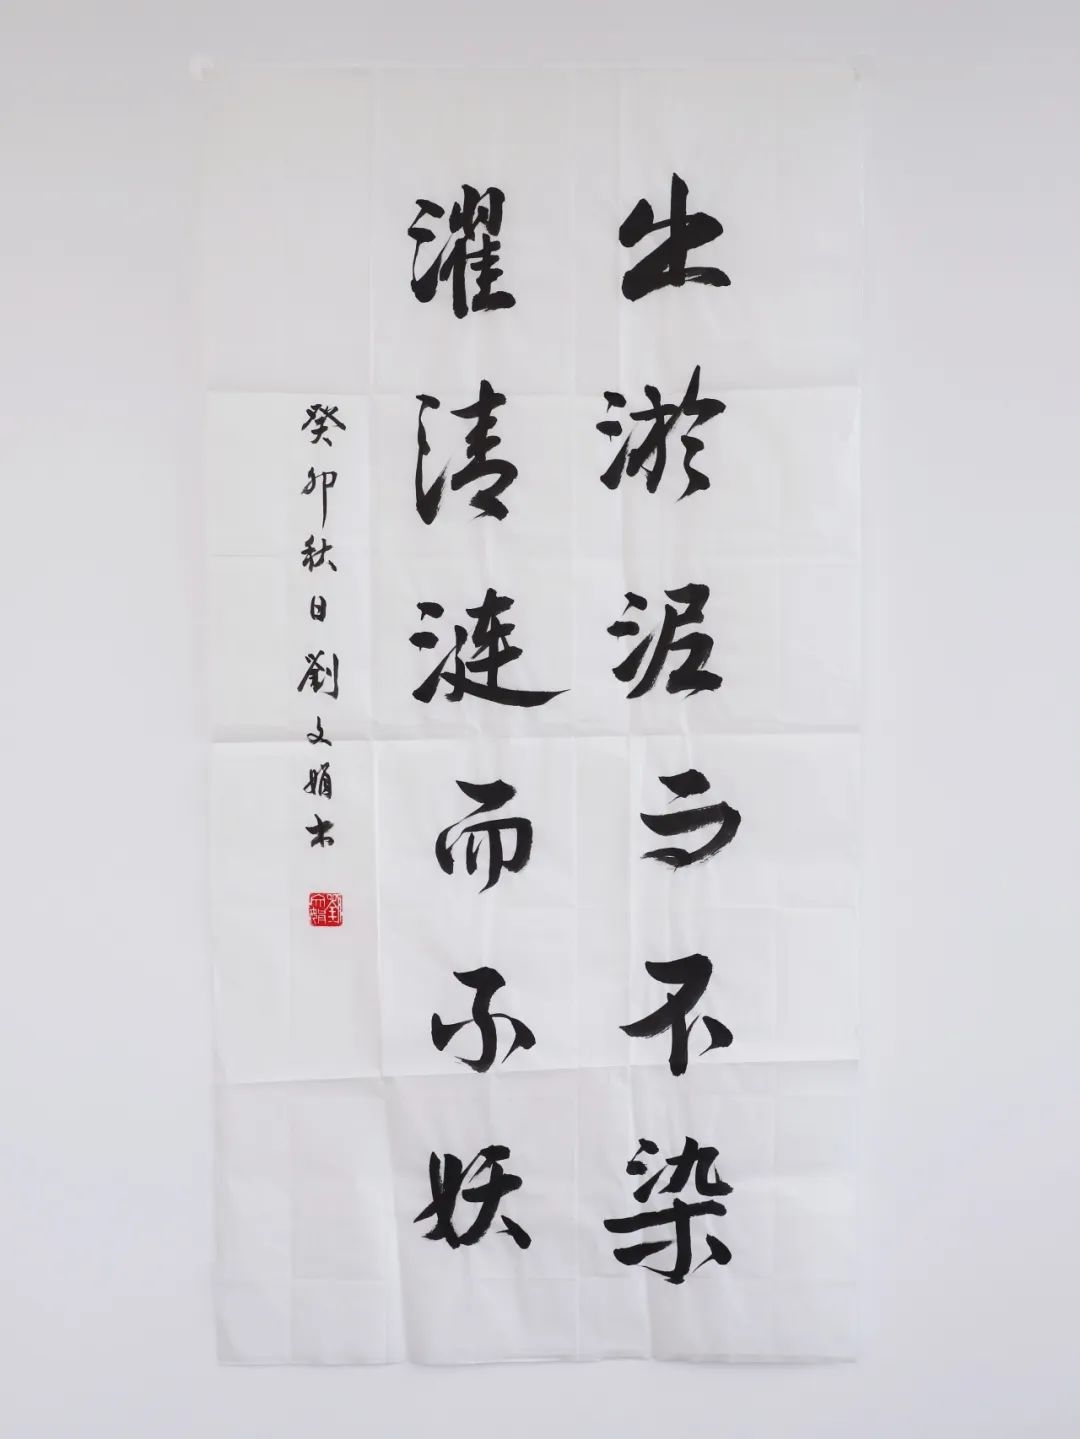 出淤泥而不染
濯清涟而不妖
癸卯秋日劉文娟书
劉文娟